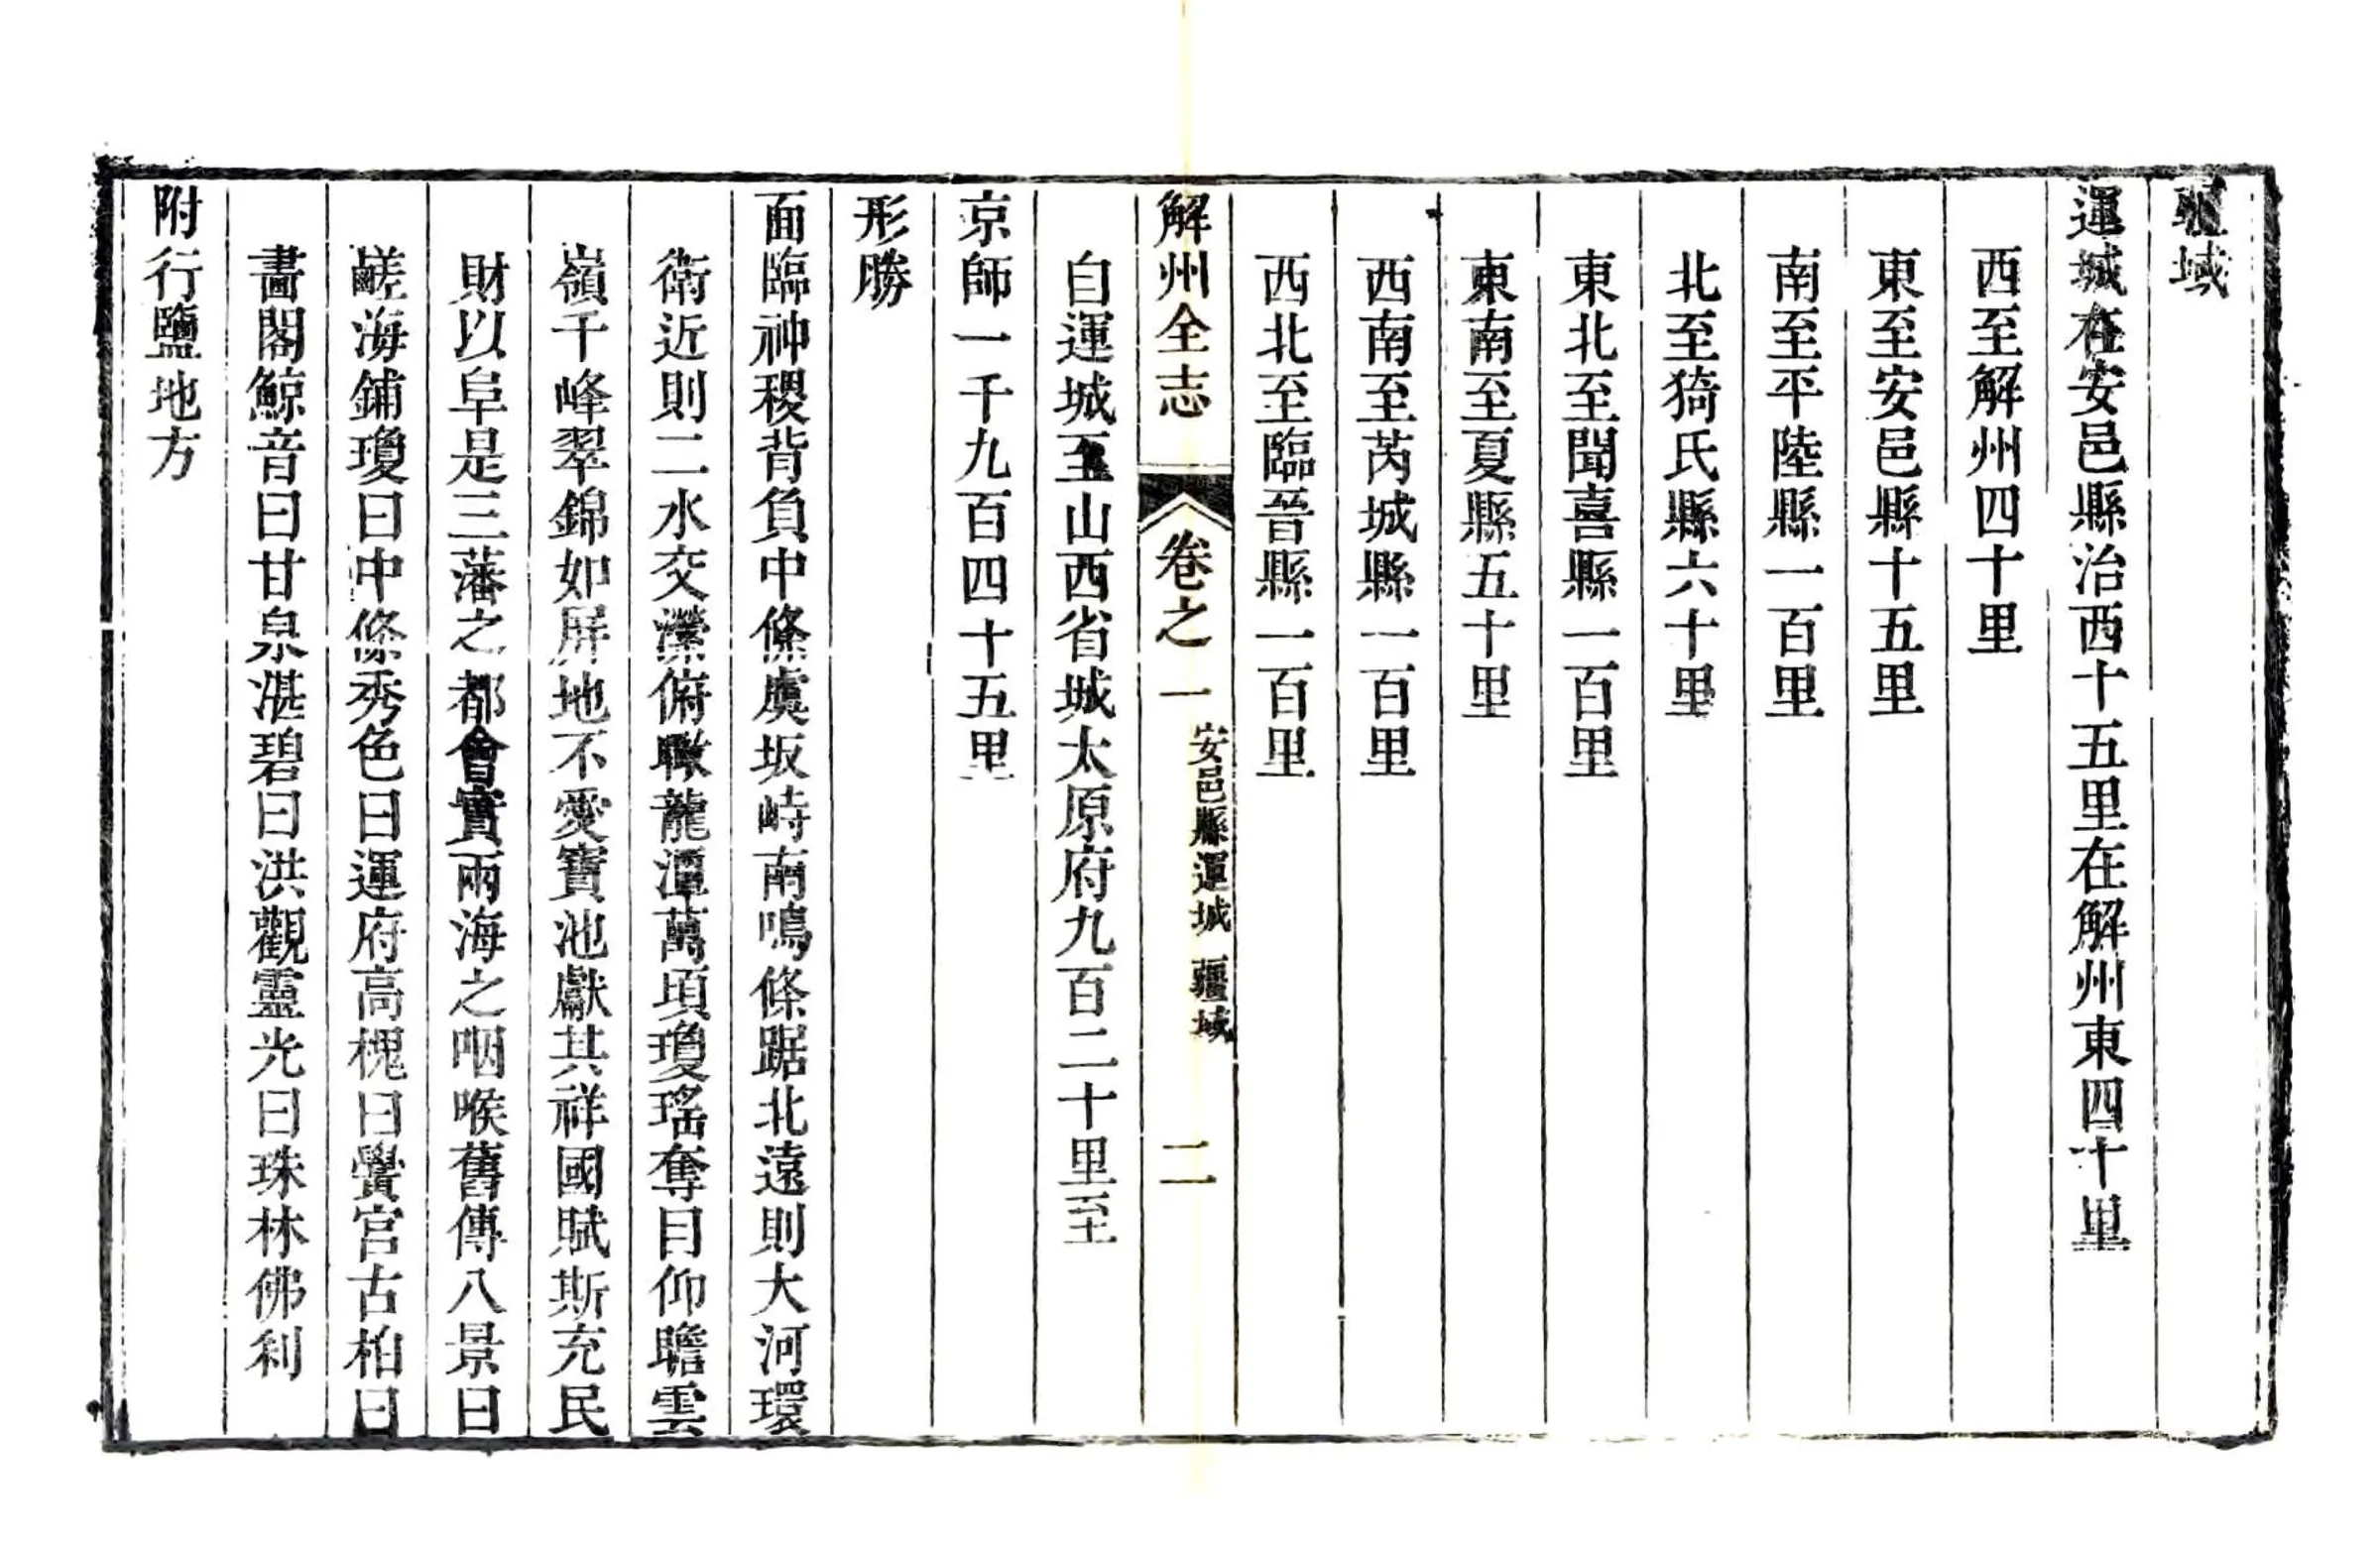 疆域
運城在安邑縣治西十五里在解州東四十里
西至解州四十里
東至安邑縣十五里
南至平陸縣一百里
北至猗氏縣六十里
東北至聞喜縣一百里
東南至夏縣五十里
西南至芮城縣一百里
西北至臨晉縣一百里
解州全志
卷之一
安邑縣運城 疆域
二
自運城至山西省城太原府九百二十里至
京師一千九百四十五里
形勝
面臨神稷背負中條虞坂峙南鳴條踞北遠則大河環
衛近則二水交瀠俯瞰龍潭萬頃瓊瑤奪目仰瞻雲
嶺千峰翠錦如屏地不愛寶池獻其祥國賦斯充民
財以阜是三藩之都會實兩海之咽喉舊傳八景曰
鹺海鋪瓊曰中條秀色曰運府高槐曰黌宮古柏曰
畵閣鯨音曰甘泉湛碧曰洪觀靈光曰珠林佛利
附行鹽地方